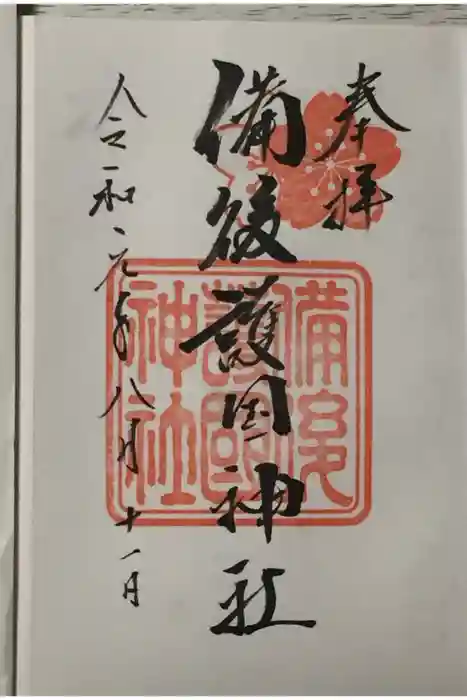 奉拝
備後護国神社
備後護國神社
令和元年八月十一日